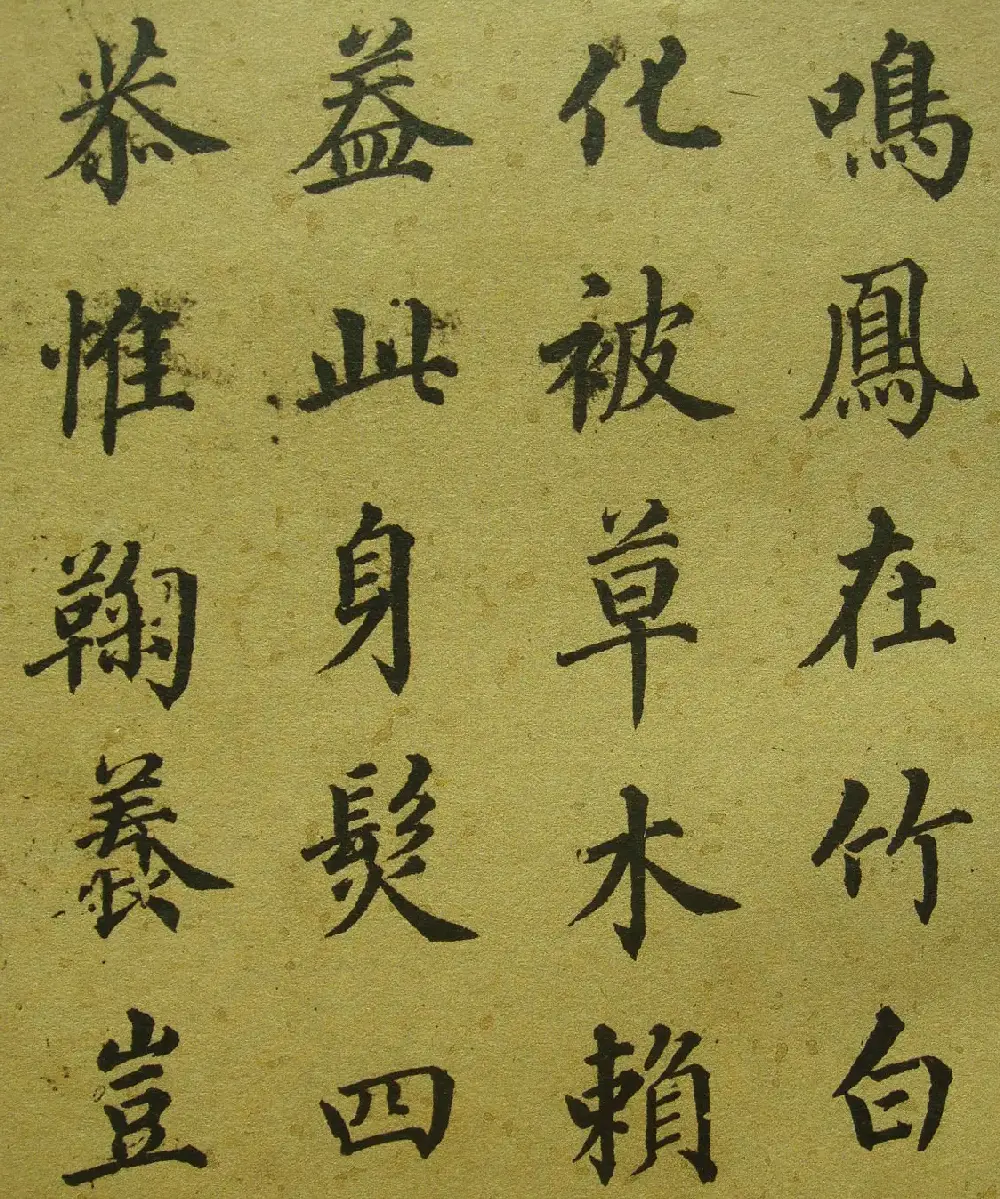 鳴鳳在竹白
化被草木賴
益此身髮四
恭惟鞠養豈